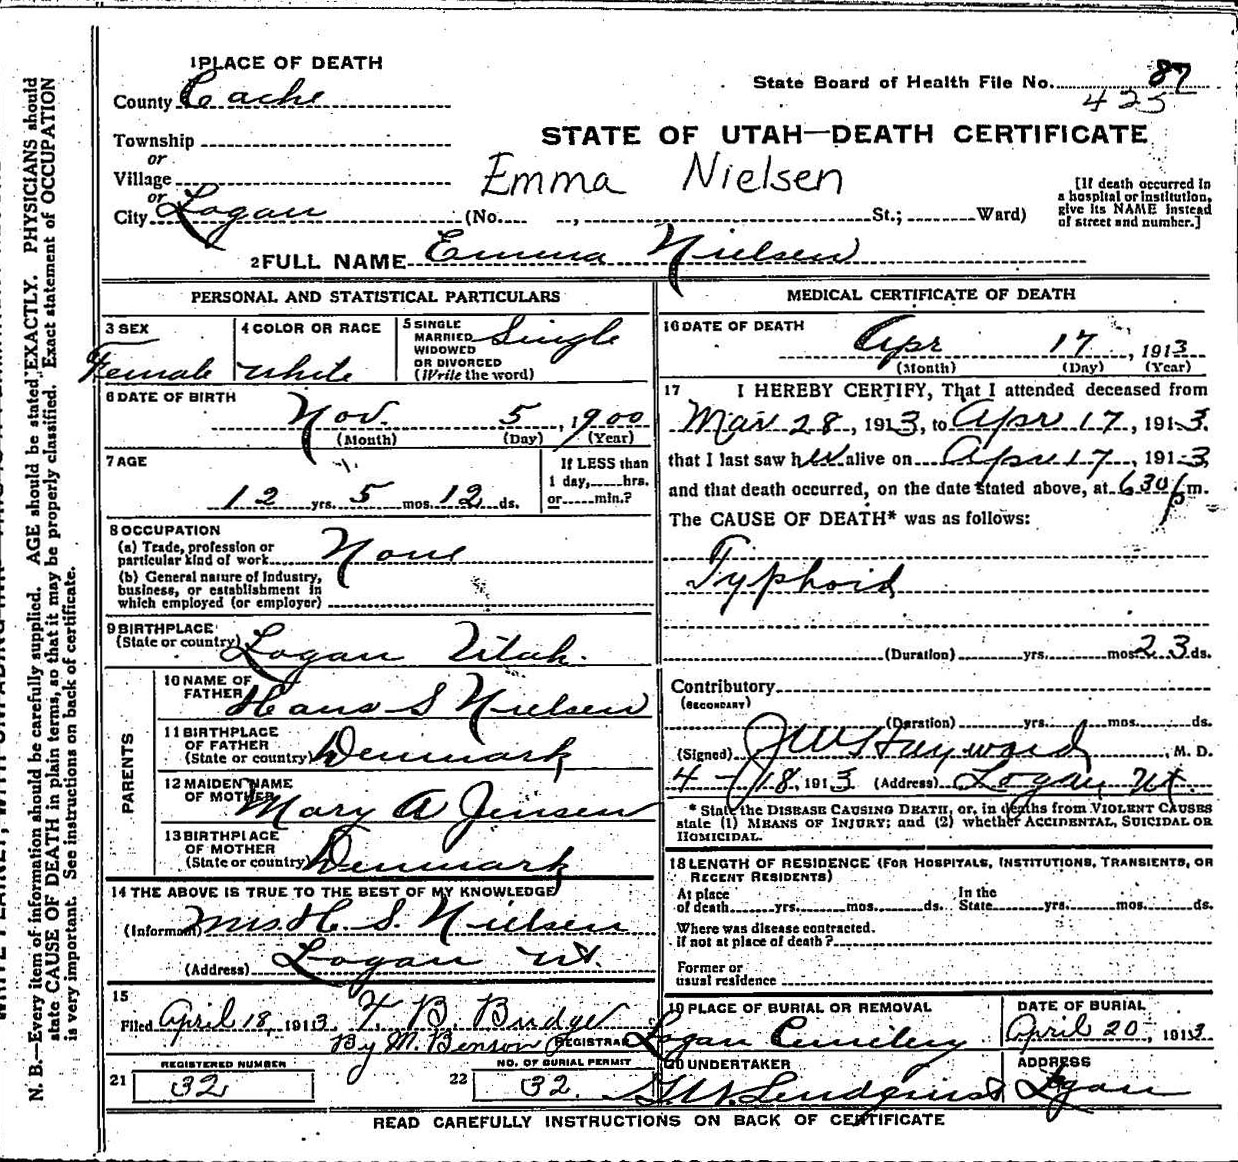 1 PLACE OF DEATH
County Cache
State Board of Health File No. 87
425
Township
or
Village
or
City Logan (No. , St.; Ward)
STATE OF UTAH—DEATH CERTIFICATE
Emma Nielsen
[If death occurred in
a hospital or institution,
give its NAME instead
of street and number.]
2 FULL NAME Emma Nielsen
PERSONAL AND STATISTICAL PARTICULARS
3 SEX
Female
4 COLOR OR RACE
White
5 SINGLE
MARRIED
WIDOWED
OR DIVORCED
(Write the word)
Single
6 DATE OF BIRTH
Nov. 5, 1900
(Month) (Day) (Year)
7 AGE
12 yrs. 5 mos. 12 ds.
If LESS than
1 day, hrs.
or min.?
8 OCCUPATION
(a) Trade, profession or
particular kind of work None
(b) General nature of Industry,
business, or establishment in
which employed (or employer)
9 BIRTHPLACE
(State or country) Logan Utah.
PARENTS
10 NAME OF
FATHER Hans S Nielsen
11 BIRTHPLACE
OF FATHER
(State or country) Denmark
12 MAIDEN NAME
OF MOTHER Mary A Jensen
13 BIRTHPLACE
OF MOTHER
(State or country) Denmark
14 THE ABOVE IS TRUE TO THE BEST OF MY KNOWLEDGE
(Informant) Mrs H. S. Nielsen
(Address) Logan Ut.
15
Filed April 18, 1913. F. B. Budge
By M. Benson REGISTRAR
REGISTERED NUMBER
21 32
NO. OF BURIAL PERMIT
22 32.
MEDICAL CERTIFICATE OF DEATH
16 DATE OF DEATH
Apr 17, 1913
(Month) (Day) (Year)
17 I HEREBY CERTIFY, That I attended deceased from
Mar 28, 1913, to Apr 17, 1913.
that I last saw her alive on Apr 17, 1913,
and that death occurred, on the date stated above, at 630 p m.
The CAUSE OF DEATH* was as follows:
Typhoid
(Duration) yrs. mos. 23 ds.
Contributory
(SECONDARY)
(Duration) yrs. mos. ds.
(Signed) J W Hayward M. D.
4-18, 1913 (Address) Logan, Ut.
* State the DISEASE CAUSING DEATH, or, in deaths from VIOLENT CAUSES
state (1) MEANS OF INJURY; and (2) whether ACCIDENTAL, SUICIDAL OR
HOMICIDAL.
18 LENGTH OF RESIDENCE (FOR HOSPITALS, INSTITUTIONS, TRANSIENTS, OR
RECENT RESIDENTS)
At place
of death yrs. mos. ds.
In the
State yrs. mos. ds.
Where was disease contracted.
if not at place of death?
Former or
usual residence
19 PLACE OF BURIAL OR REMOVAL
Logan Cemetery
DATE OF BURIAL
April 20, 1913
20 UNDERTAKER
ADDRESS
Logan
READ CAREFULLY INSTRUCTIONS ON BACK OF CERTIFICATE
N. B.—Every item of information should be carefully supplied. AGE should be stated EXACTLY. PHYSICIANS should
state CAUSE OF DEATH in plain terms, so that it may be properly classified. Exact statement of OCCUPATION
is very important. See instructions on back of certificate.